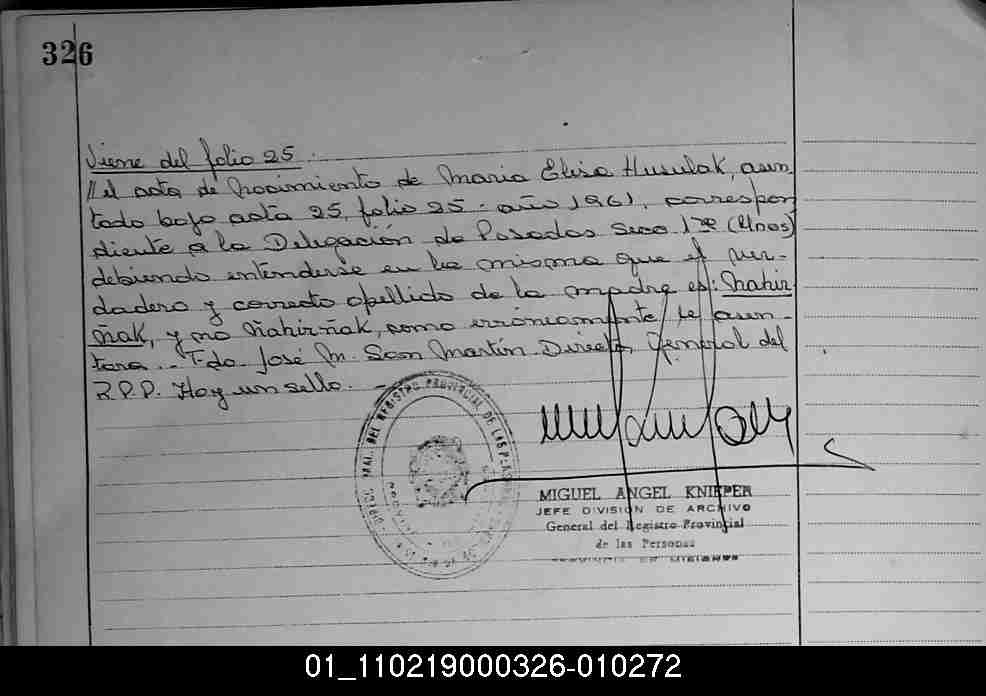 326
Viene del folio 25.
// el acta de Nacimiento de Maria Elisa Husulak, asen
tada bajo acta 25, folio 25 - año 1961, correspon
diente a la Delegación de Posadas Secc. 1ra (Unos)
debiendo entenderse en la misma que el ver-
dadero y correcto apellido de la madre es: Nahir
ñak, y no Ñahirñak, como erróneamente se asen-
tara. - Fdo. José M. San Martín. Director General del
R.P.P. Hay un sello. -
DEL REGISTRO PROVINCIAL DE LAS PERSONAS
MIGUEL ANGEL KNIEPER
JEFE DIVISION DE ARCHIVO
General del Registro Provincial
de las Personas
PROVINCIA DE MISIONES
01_110219000326-010272